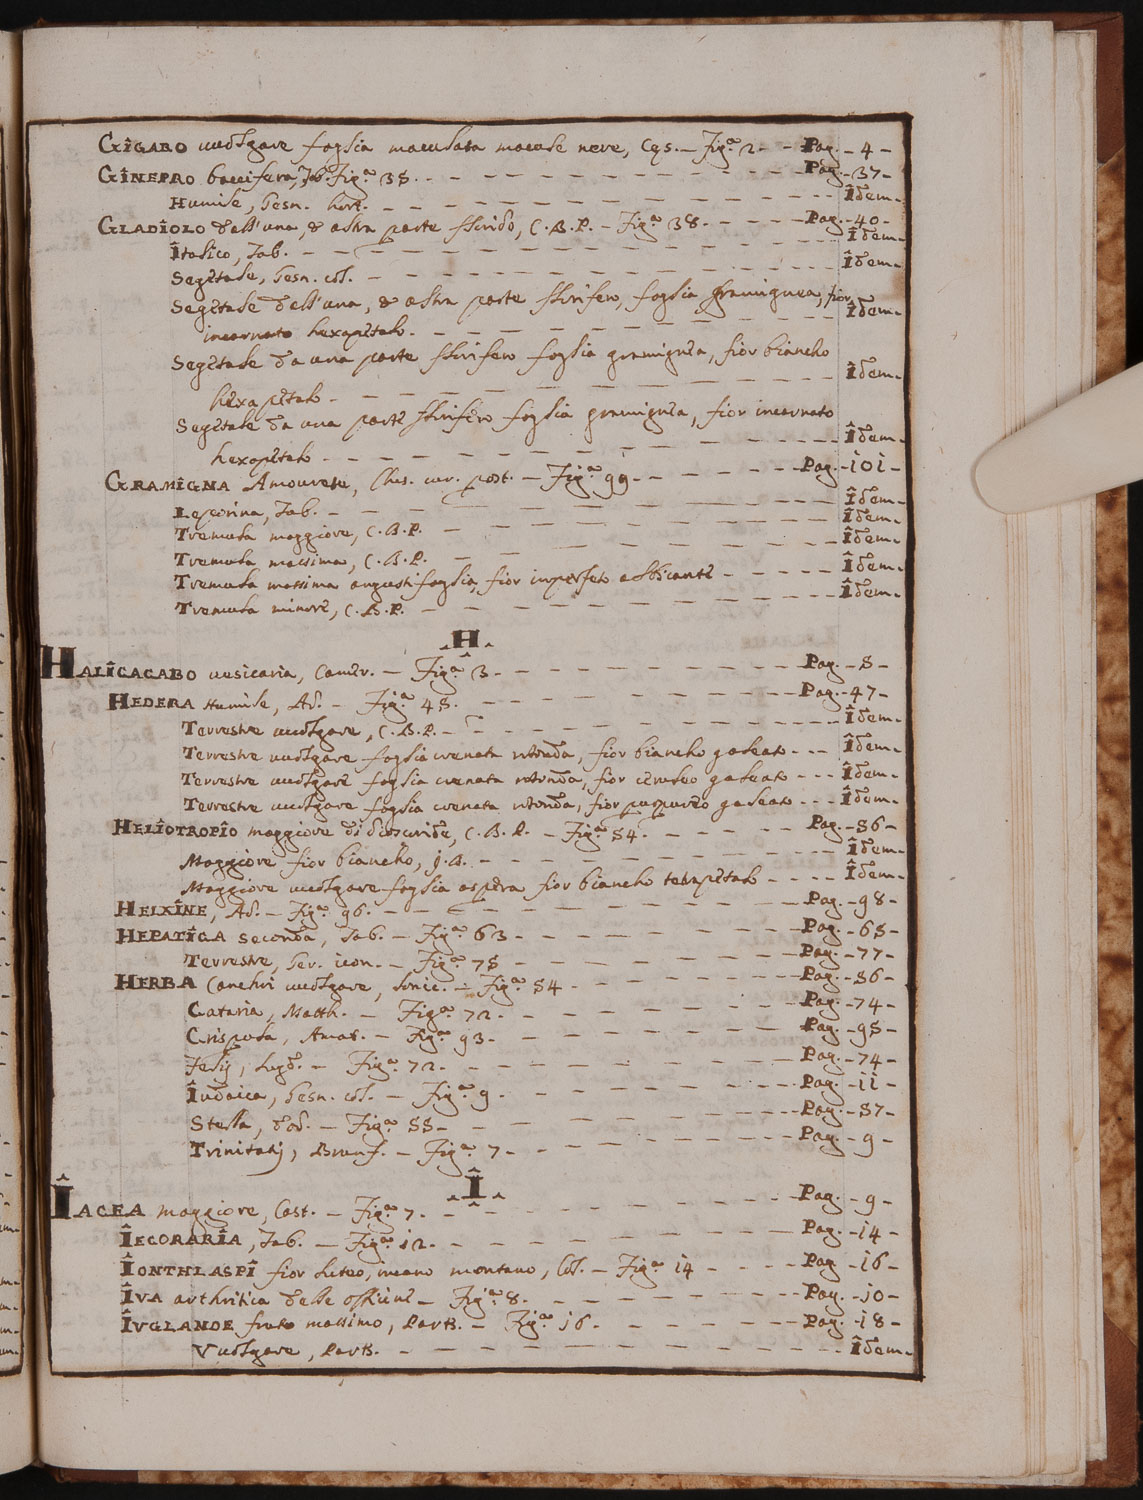 GÎGARO uuolgare foglia maculata macule nere, Cęs. - Figᵃ 2. - - Pag. - 4 -
GÎNEPRO baccifero, Tab. Figᵃ 38. - - - - - - - - - - Pag. - 37 -
Humile, Gesn. hort. - - - - - - - - - - - - - Îdem -
GLADÎOLO dall'una, & altra parte florido, C.B.P. - Figᵃ 38. - - - - Pag. - 40 -
Îtalico, Tab. - - - - - - - - - - - - - Îdem -
Segetale, Gesn. col. - - - - - - - - - - - - - Îdem -
Segetale dall'una, & altra parte florifero, foglia gramignea, fior
incarnato hexapetalo. - - - - - - - - - - - Îdem -
Segetale da una parte florifero foglia gramignea, fior biancho
hexapetalo - - - - - - - - - - - - - Îdem -
Segetale da una parte florifero foglia gramignea, fior incarnato
hexapetalo - - - - - - - - - - - - - Îdem -
GRAMÎGNA Amourete, Clus. cur. post. - Figᵃ 99 - - - - - - Pag. - 101 -
Leporina, Tab. - - - - - - - - - - - - Îdem -
Tremula maggiore, C.B.P. - - - - - - - - - - Îdem -
Tremula massima, C.B.P. - - - - - - - - - - Îdem -
Tremula massima angustifoglia, fior imperfeto albicante - - - - - Îdem -
Tremula minore, C.B.P. - - - - - - - - - - Îdem -
H
HALÎCACABO uesicaria, Camer. - Figᵃ 3 - - - - - - - - Pag. - 8 -
HEDERA Humile, Ad. - Figᵃ 48. - - - - - - - - Pag. - 47 -
Terrestre uuolgare, C.B.P. - - - - - - - - - - Îdem -
Terrestre uuolgare foglia crenata rotonda, fior biancho galeato - - - Îdem -
Terrestre uuolgare foglia crenata rotonda, fior ceruleo galeato - - - Îdem -
Terrestre uuolgare foglia crenata rotonda, fior purpureo galeato - - - Îdem -
HELÎOTROPÎO maggiore di dioscoride, C.B.P. - Figᵃ 84. - - - - - Pag. - 86 -
Maggiore fior biancho, j.B. - - - - - - - - - - Îdem -
Maggiore uuolgare foglia aspera fior biancho tetrapetalo - - - - Îdem -
HELXÎNE, Ad. - Figᵃ 96. - - - - - - - - - - - Pag. - 98 -
HEPATÎCA seconda, Tab. - Figᵃ 63 - - - - - - - - Pag. - 65 -
Terrestre, Ger. icon. - Figᵃ 75 - - - - - - - - Pag. - 77 -
HERBA Canchri uuolgare, Lonic. - Figᵃ 84 - - - - - - Pag. - 86 -
Cataria, Matth. - Figᵃ 72. - - - - - - - - Pag. - 74 -
Crispula, Amat. - Figᵃ 93 - - - - - - - - Pag. - 95 -
Felij, Lugd. - Figᵃ 72 - - - - - - - - Pag. - 74 -
Îudaica, Gesn. col. - Figᵃ 9 - - - - - - - - Pag. - 11 -
Stella, dod. - Figᵃ 55 - - - - - - - - Pag. - 57 -
Trinitatij, Brunf. - Figᵃ 7 - - - - - - - - Pag. - 9 -
Î
ÎACEA maggiore, Cast. - Figᵃ 7. - - - - - - - - Pag. - 9 -
ÎECORARÎA, Tab. - Figᵃ 12 - - - - - - - - Pag. - 14 -
ÎONTHLASPÎ fior luteo, incano montano, Col. - Figᵃ 14 - - - - Pag - 16 -
ÎVA arthritica delle officine - Figᵃ 8. - - - - - - - Pag. - 10 -
ÎUGLANDE fruto massimo, PavB. - Figᵃ 16 - - - - - - Pag. - 18 -
Vuolgare, PavB. - - - - - - - - - - - - Îdem -